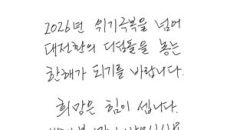 2026년 위기극복을 넘어
대전환의 디딤돌을 놓는
한해가 되기를 바랍니다.
희망은 힘이 셉니다.